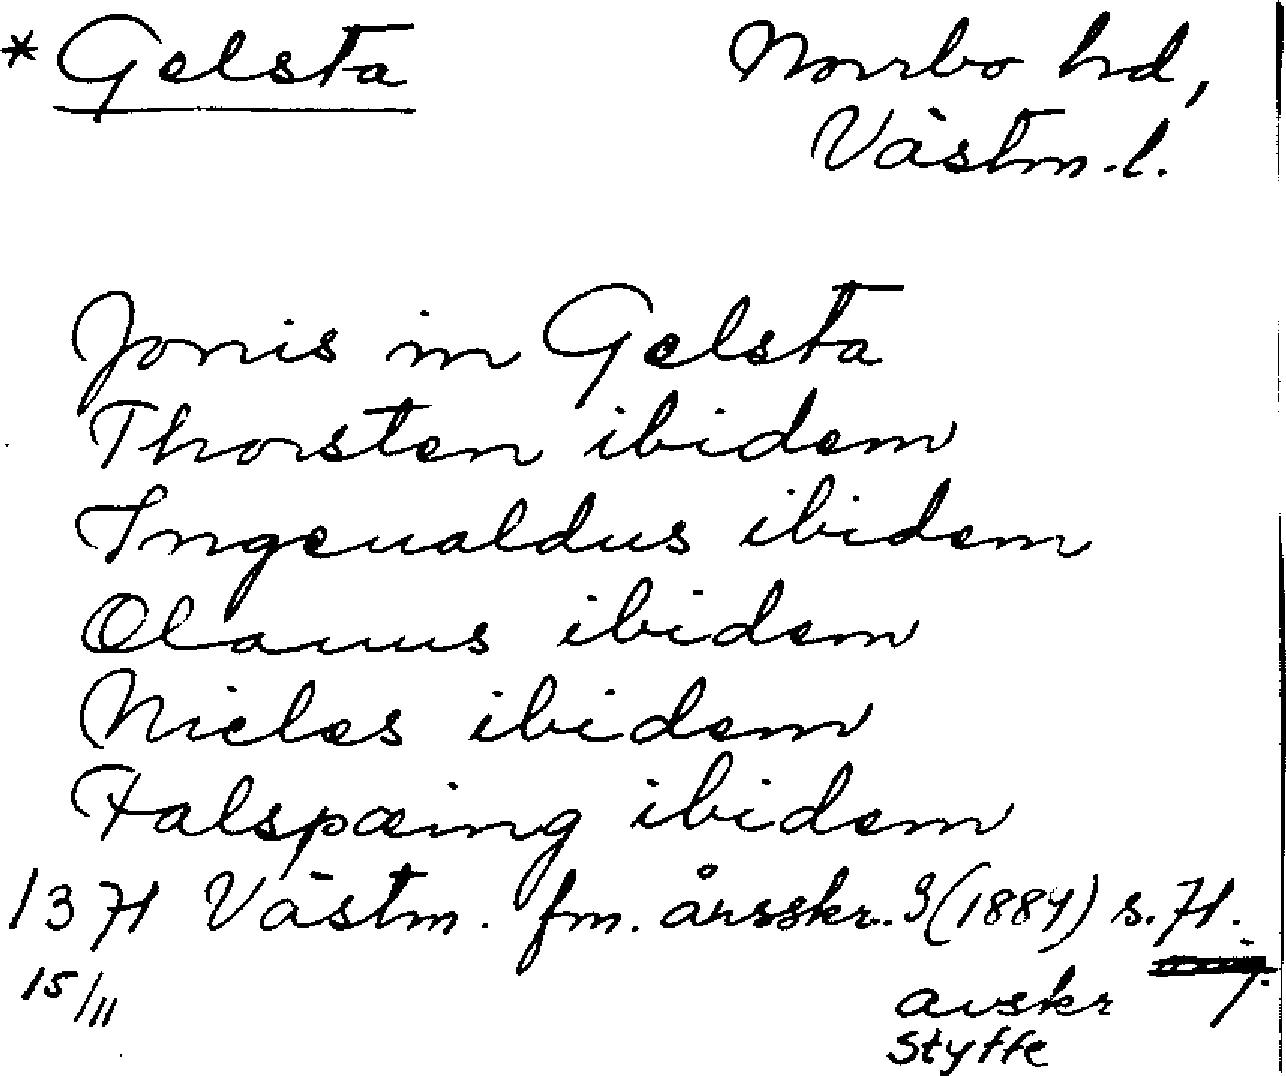 * Gelsta Norrbo hd,
Västm.l.
Jonis in Gelsta
Thorsten ibidem
Ingeualdus ibidem
Olauus ibidem
Niclas ibidem
Falspæing ibidem
1371 Västm. fm. årsskr. 3 (1884) s. 71.
15/11 avskr
Styffe